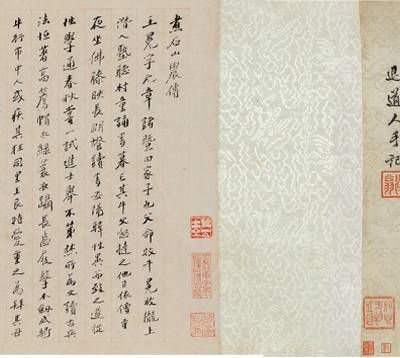 道人手記
煮石山農傳
王冕字元章諸暨田家子也父命牧牛冕放隴上
潛入塾聽村童誦書暮亡其牛父怒撻之他日依僧寺
夜坐佛膝映長明燈讀書安陽韓性異而致之遂從
性學通春秋嘗一試進士舉不第焚所為文讀古兵
法恒著高簷帽衣綠蓑衣躡長齒屐擊木劍或騎
牛行市中人或疾其狂同里王艮特愛重之為拜其母